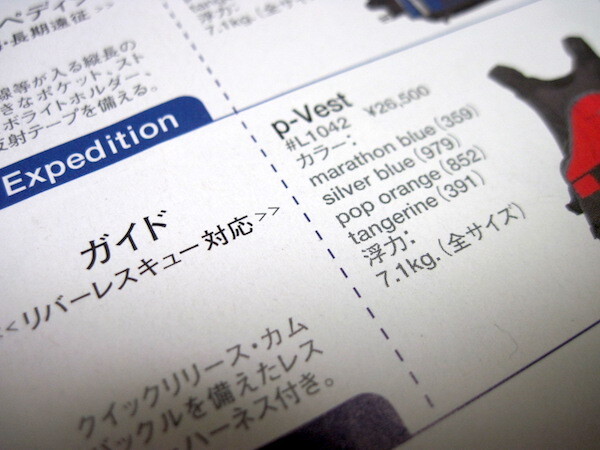 ペディン
・長期遠征 >>
線等が入る縦長の
きなポケット、スト
ボライトホルダー、
反射テープを備える。
浮力:
7.1kg.(全サ
Expedition
ガイド
<<リバーレスキュー対応>>
クイックリリース・カム
バックルを備えたレス
ハーネス付き。
p-Vest
#L1042 ¥26,500
カラー:
marathon blue (359)
silver blue (979)
pop orange (852)
tangerine (391)
浮力:
7.1kg.(全サイズ)